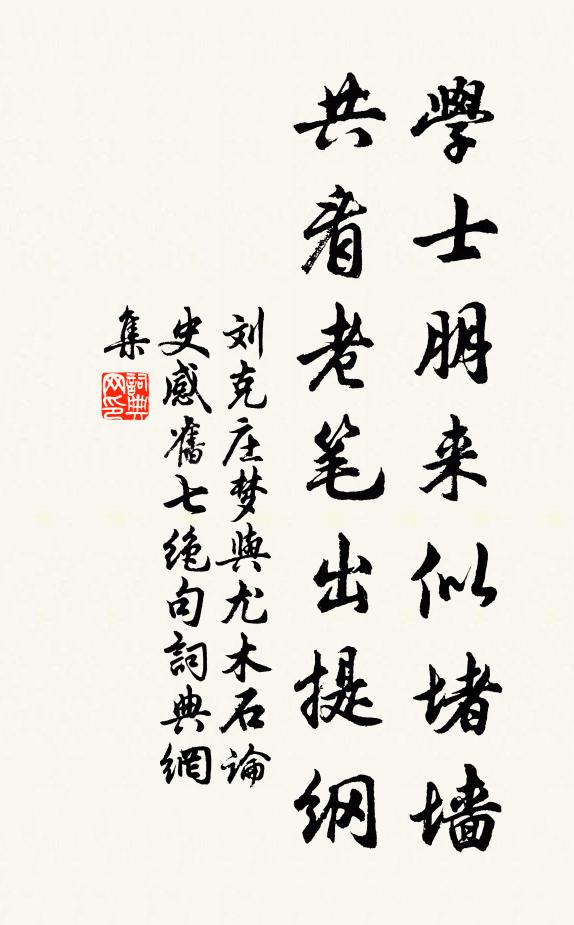 學士朋来似堵墙
共看老笔出提纲
刘克庄梦與尤木石論
史感舊七绝句詞典網
集
詞典
网印